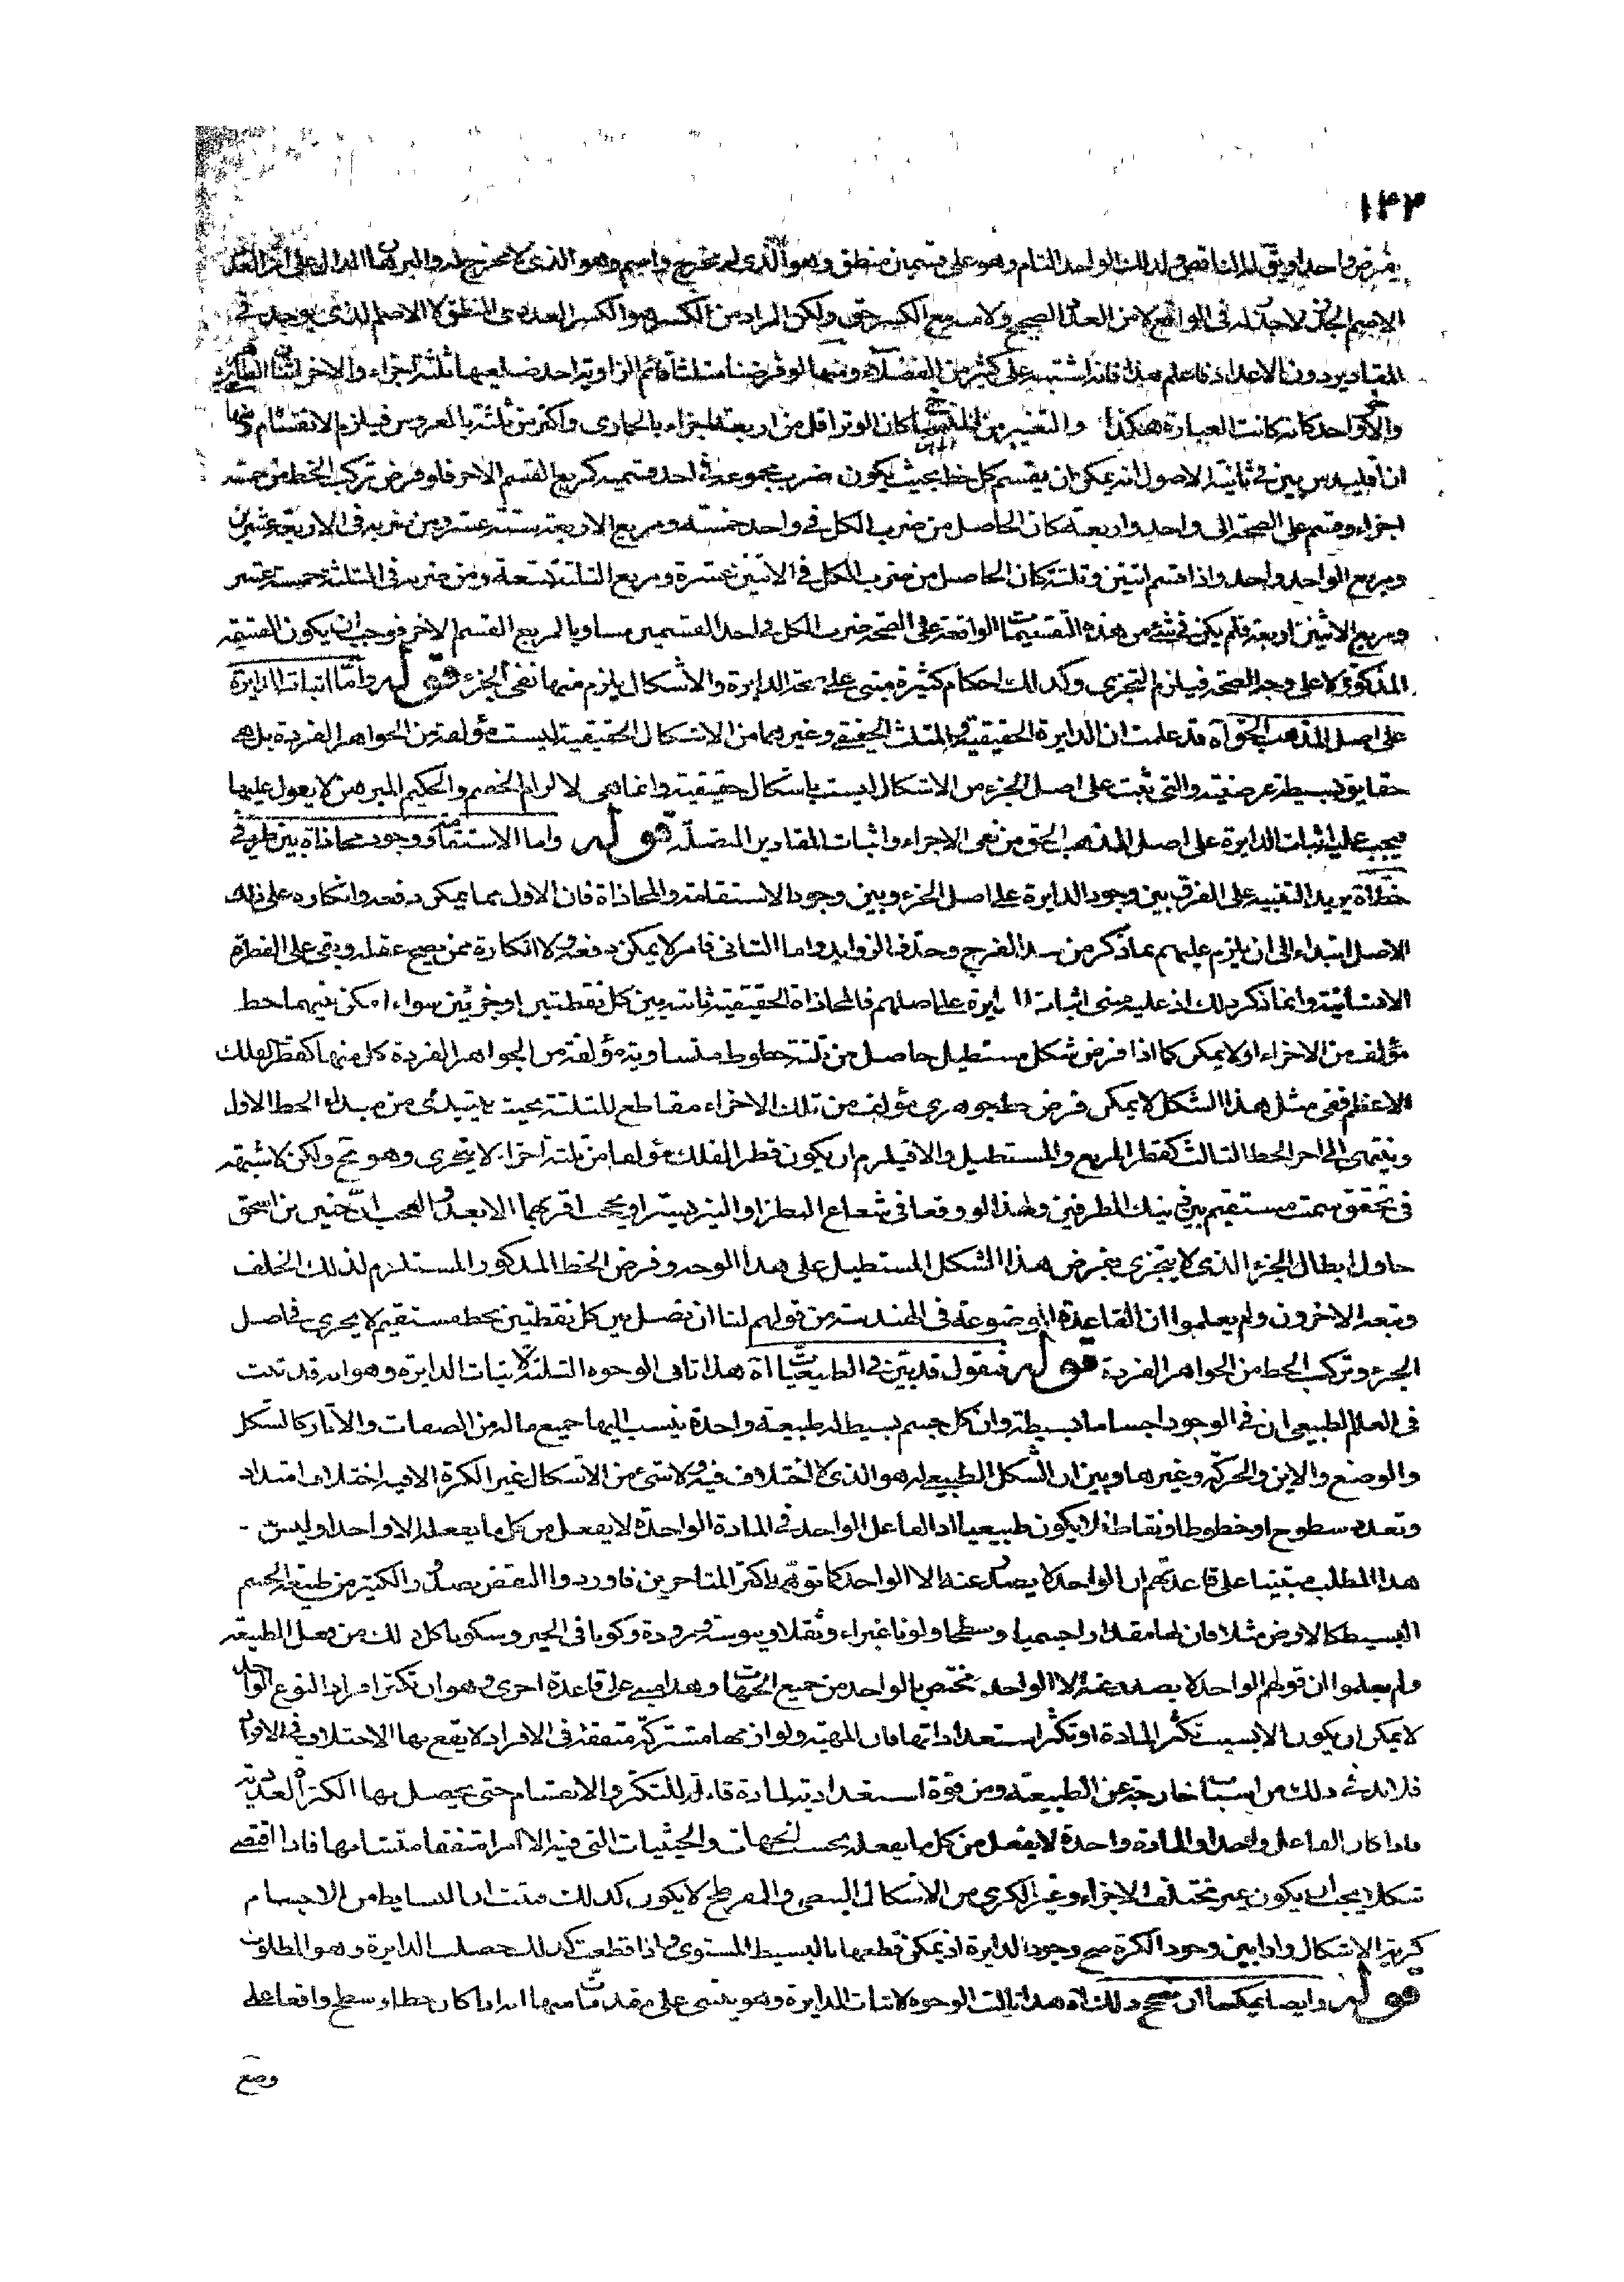 ١٤٣
يفرض واحدا ويق له الناقص ولذلك الواحد التام وهو على قسمين منطق وهو الذى له مخرج واصم وهو الذى لا مخرج له والبرهان الدال على ان العدد
الاصم الجذر لا جذر له فى الواقع لا من العدد الصحيح ولا منه مع الكسر حق ولكن المراد من الكسر هو الكسر العددى المنطق لا الاصم الذى يوجد فى
المقادير دون الاعداد فاعلم هذا فانه اشتبه على كثير من الفضلاء ومنها لو فرضنا مثلثا قائم الزاوية احد ضلعيها ثلثة اجزاء والاخر اثنا
والا واحد كانه كانت العبارة هكذا والتغيير من كان الوتر اقل من اربعة اجزاء بالحمارى واكثر من ثلثة بالعروس فيلزم الانقسام ومنها
ان اقليدس بين فى ثانية الاصول انه يمكن ان يقسم كل خط بحيث يكون ضرب مجموعه فى احد قسميه كمربع القسم الاخر فلو فرض تركب الخط من خمسة
اجزاء وقسم على الصحة الى واحد واربعة كان الحاصل من ضرب الكل فى واحد خمسة ومربع الاربعة ستة عشر ومن ضربه فى الاربعة عشرين
ومربع الواحد واحد واذا قسم اثنين وثلثة كان الحاصل من ضرب الكل فى الاثنين عشرة ومربع الثلثة تسعة ومن ضربه فى الثلثة خمسة عشر
ومربع الاثنين اربعة فلم يكن فى شئ من هذه التقسيمات الواقعة على الصحة ضرب الكل فى احد القسمين مساويا لمربع القسم الاخر فوجب ان يكون القسمة
المذكورة لا على وجه الصحة فيلزم التجزى وكذلك احكام كثيرة مبتنى على صحة الدايرة والاشكال يلزم منها نفى الجزء قوله واما اثبات الدايرة
على اصل المذهب الحق آه قد علمت ان الدايرة الحقيقية والمثلث الحقيقى وغيرهما من الاشكال الحقيقية ليست مؤلفة من الجواهر الفردة بل هى
حقايق بسيطة عرضية والتى تثبت على اصل الجزء من الاشكال ليست باشكال حقيقية وانما هى لالزام الخصم والحكيم المبرهن لا يعول عليها
فيجب عليه اثبات الدايرة على اصل المذهب الحق من نفى الاجزاء واثبات المقادير المتصلة قوله واما الاستقامة ووجود محاذاة بين طرفى
خط آه يريد التنبيه على الفرق بين وجود الدايرة على اصل الجزء وبين وجود الاستقامة والمحاذاة فان الاول مما يمكن دفعه وانكاره على ذلك
الاصل ابتداء الى ان يلزم عليهم بما ذكر من سد الفرج وحذف الزوايد واما الثانى فامر لا يمكن دفعه ولا انكاره ممن يصح عقله وبقى على الفطرة
الانسانية وانما ذكر ذلك اذ عليه مبنى اثبات الدايرة على اصلهم فالمحاذاة الحقيقية ثابتة بين كل نقطتين او جزئين سواء امكن بينهما خط
مؤلف من الاجزاء او لا يمكن كما اذا فرض شكل مستطيل حاصل من ثلثة خطوط متساوية مؤلفة من الجواهر الفردة كل منها كقطر الفلك
الاعظم ففى مثل هذا الشكل لا يمكن فرض خط جوهرى مؤلف من تلك الاجزاء مقاطع للثلثة بحيث يبتدئ من مبدء الخط الاول
وينتهى الى اخر الخط الثالث كقطر المربع والمستطيل والا فيلزم ان يكون قطر الفلك مؤلفا من ثلثة اجزاء لا يتجزى وهو مح ولكن لا شبهة
فى تحقق سمت مستقيم بين ذينك الطرفين ولهذا لو وقعا فى شعاع البصر او النير يستر او يحجب اقربهما الابعد والعجب ان حنين بن اسحق
حاول ابطال الجزء الذى لا يتجزى بفرض هذا الشكل المستطيل على هذا الوجه وفرض الخط المذكور المستلزم لذلك الخلف
وتبعه الاخرون ولم يعلموا ان القاعدة الموضوعة فى الهندسة من قولهم لنا ان نصل بين كل نقطتين بخط مستقيم لا يجرى فى اصل
الجزء وتركب الخط من الجواهر الفردة قوله فنقول قد بين فى الطبيعيات آه هذا ثانى الوجوه الثلثة لاثبات الدايرة وهو انه قد ثبت
فى العلم الطبيعى ان فى الوجود اجساما بسيطة وان كل جسم بسيط له طبيعة واحدة ينسب اليها جميع ماله من الصفات والآثار كالشكل
والوضع والاين والحركة وغيرها وبين ان الشكل الطبيعى له هو الذى لا اختلاف فيه ولا شئ من الاشكال غير الكرة الا فيه اختلاف امتداد
وتعدد سطوح او خطوط او نقاط فلا يكون طبيعيا اذ الفاعل الواحد فى المادة الواحدة لا يفعل من كل ما يفعله الا واحدا وليس
هذا المطلب مبتنيا على قاعدتهم ان الواحد لا يصدر عنه الا الواحد كما توهمه اكثر المتاخرين فاوردوا النقض بصدور الكثير من طبيعة الجسم
البسيط كالارض مثلا فان لها مقدارا جسميا وسطحا ولونا غبراء وثقلا ويبوسة وبرودة وكونا فى الحيز وسكونا كل ذلك من فعل الطبيعة
ولم يعلموا ان قولهم الواحد لا يصدر عنه الا الواحد مختص بالواحد من جميع الجهات وهذا مبنى على قاعدة اخرى وهو ان تكثر افراد النوع الواحد
لا يمكن ان يكون الا بسبب تكثر المادة او تكثر استعداداتها فان المهية ولوازمها مشتركة متفقة فى الافراد لا يقع بها الاختلاف فى الافراد
فلا بد فى ذلك من اسباب خارجة عن الطبيعة ومن قوة استعدادية لمادة قابلة للتكثر والانقسام حتى يحصل بها الكثرة العددية
فاذا كان الفاعل واحدا والمادة واحدة لا يفعل من كل ما يفعله بحسب الجهات والحيثيات التى فيه الا امرا متفقا متشابها فاذا اقتضى
شكلا يجب ان يكون غير مختلف الاجزاء وغير الكرى من الاشكال البيضى والمفرطح لا يكون كذلك فثبت ان البسايط من الاجسام
كرية الاشكال واذا بين وجود الكرة صح وجود الدايرة اذ يمكن قطعها بالبسيط المستوى واذا قطعت كذلك حصلت الدايرة وهو المطلوب
قوله وايضا يمكننا ان نصحح ذلك آه هذا ثالث الوجوه لاثبات الدايرة وهو يبتنى على مقدمات منها انه اذا كان خط او سطح واقعا على
وضع